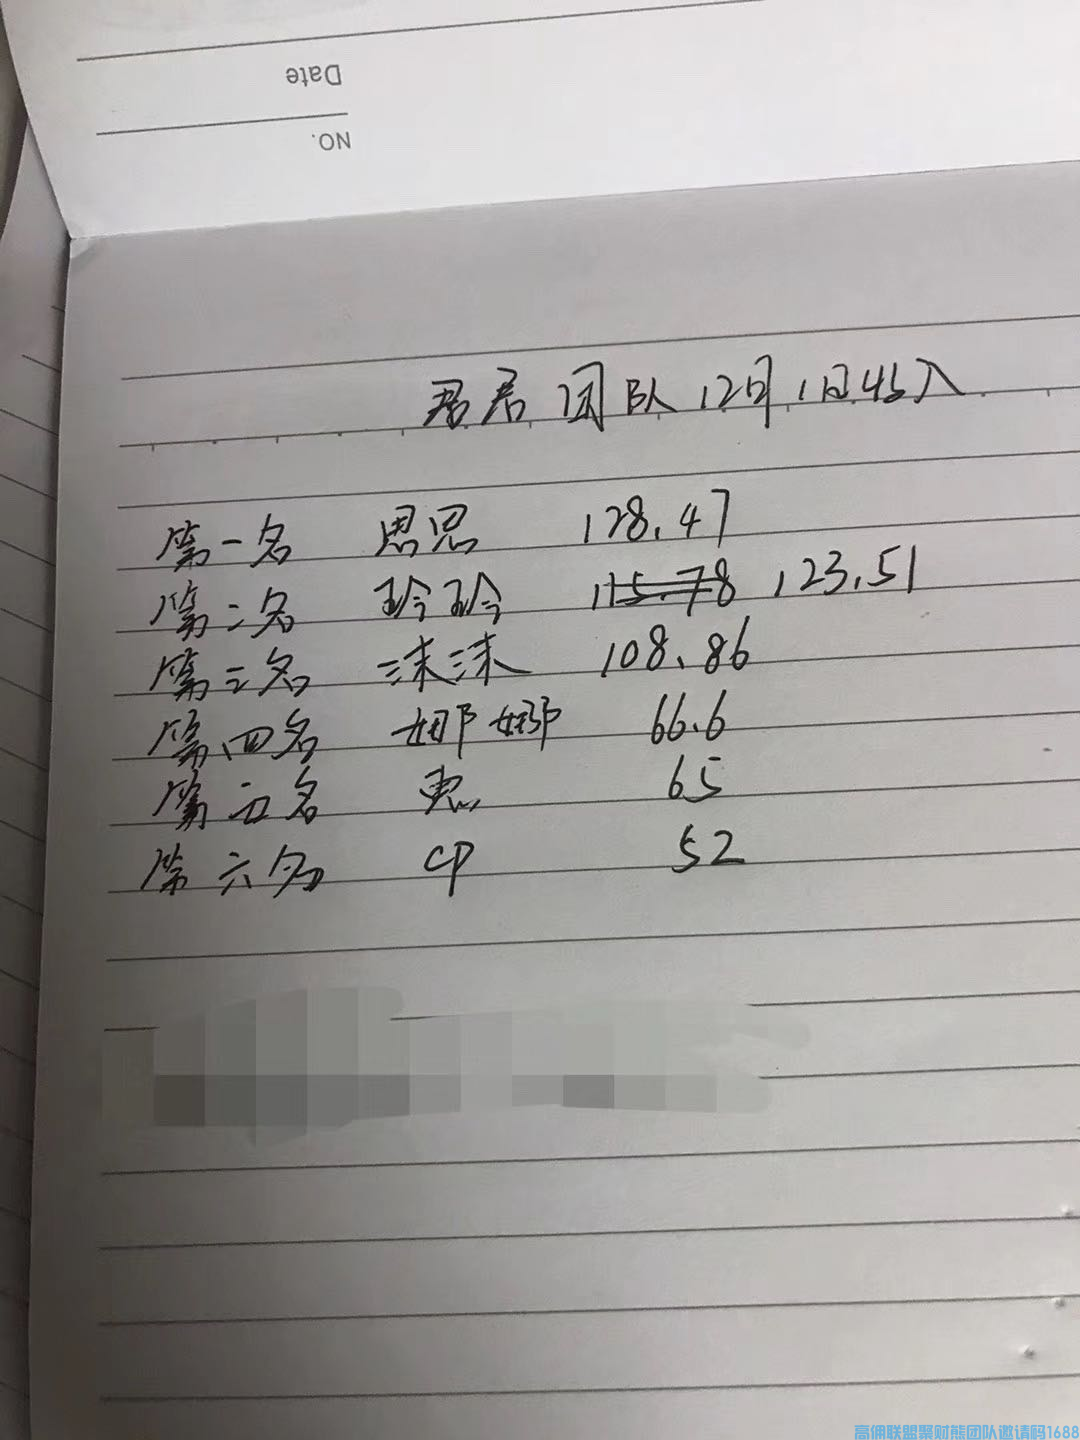 Date
NO.
君君团队12月1日收入
第一名 思思 128.47
第二名 玲玲 115.78 123.51
第三名 沫沫 108.86
第四名 娜娜 66.6
第五名 惠 65
第六名 CP 52
高佣联盟聚财熊团队邀请码1688